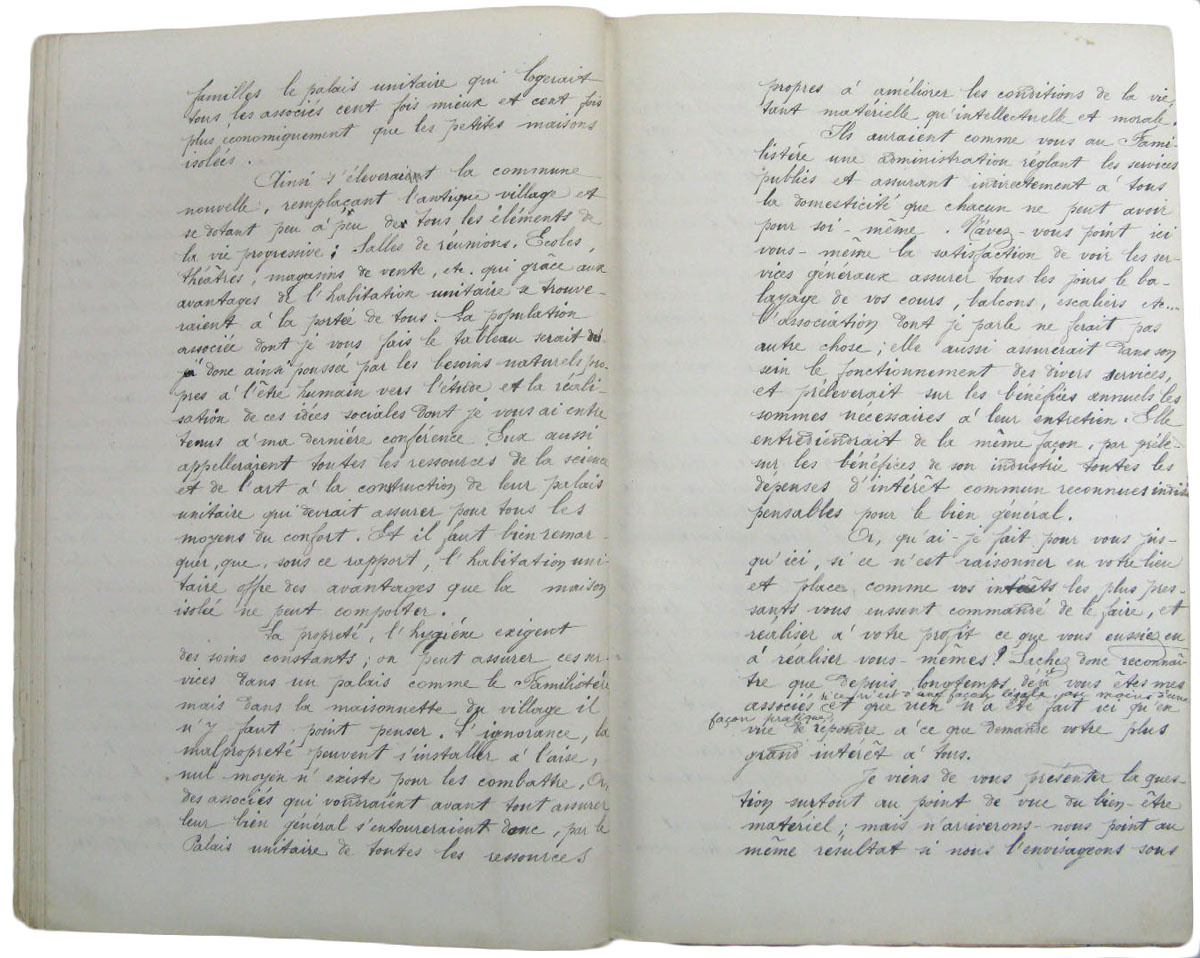 familles le palais unitaire qui logerait
tous les associés cent fois mieux et cent fois
plus économiquement que les petites maisons
isolées.
Ainsi s'éleveraient la commune
nouvelle, remplaçant l'antique village et
se dotant peu à peu de tous les éléments de
la vie progressive; Salles de réunions, Ecoles,
théâtres, magasins de vente, etc. qui grâce aux
avantages de l'habitation unitaire se trouve-
raient à la portée de tous. La population
associée dont je vous fais le tableau serait
donc ainsi poussée par les besoins naturels pro-
pres à l'être humain vers l'étude et la réali-
sation de ces idées sociales dont je vous ai entre
tenus à ma dernière conférence. Eux aussi
appelleraient toutes les ressources de la science
et de l'art à la construction de leur palais
unitaire qui devrait assurer pour tous les
moyens du confort. Et il faut bien remar-
quer, que, sous ce rapport, l'habitation uni-
taire offre des avantages que la maison
isolée ne peut comporter.
La propreté, l'hygiène exigent
des soins constants; on peut assurer ces ser-
vices dans un palais comme le Familistère
mais dans la maisonnette du village il
n'y faut point penser. L'ignorance, la
malpropreté peuvent s'installer à l'aise,
nul moyen n'existe pour les combattre. Or,
des associés qui voudraient avant tout assurer
leur bien général s'entoureraient donc, par le
Palais unitaire de toutes les ressources
propres à améliorer les conditions de la vie,
tant matérielle qu'intellectuelle et morale.
Ils auraient comme vous au Fami-
listère une administration réglant les services
publics et assurant indirectement à tous
la domesticité que chacun ne peut avoir
pour soi-même. N'avez-vous point ici
vous-même la satisfaction de voir les ser-
vices généraux assurer tous les jours le ba-
layage de vos cours, balcons, escaliers etc...
L'association dont je parle ne ferait pas
autre chose; elle aussi assurerait dans son
sein le fonctionnement des divers services,
et préleverait sur les bénéfices annuels les
sommes necessaires à leur entretien. Elle
entrediendrait de la même façon, par prélè-
sur les bénéfices de son industrie toutes les
dépenses d'intérêt commun reconnues indis
pensables pour le bien général.
Or, qu'ai-je fait pour vous jus-
qu'ici, si ce n'est raisonner en votre lieu
et place comme vos intérêts les plus pres-
sants vous eussent commandé de le faire, et
réaliser à votre profit ce que vous eussiez eu
à réaliser vous-mêmes! Sachez donc reconnaî-
tre que depuis longtemps déjà vous êtes mes
associés si ce n'est d'une façon légale, au moins d'une
façon pratique, et que rien n'a été fait ici qu'en
vue de répondre à ce que demande votre plus
grand intérêt à tous.
Je viens de vous présenter la ques-
tion surtout au point de vue du bien-être
matériel; mais n'arriverons-nous point au
même resultat si nous l'envisageons sous